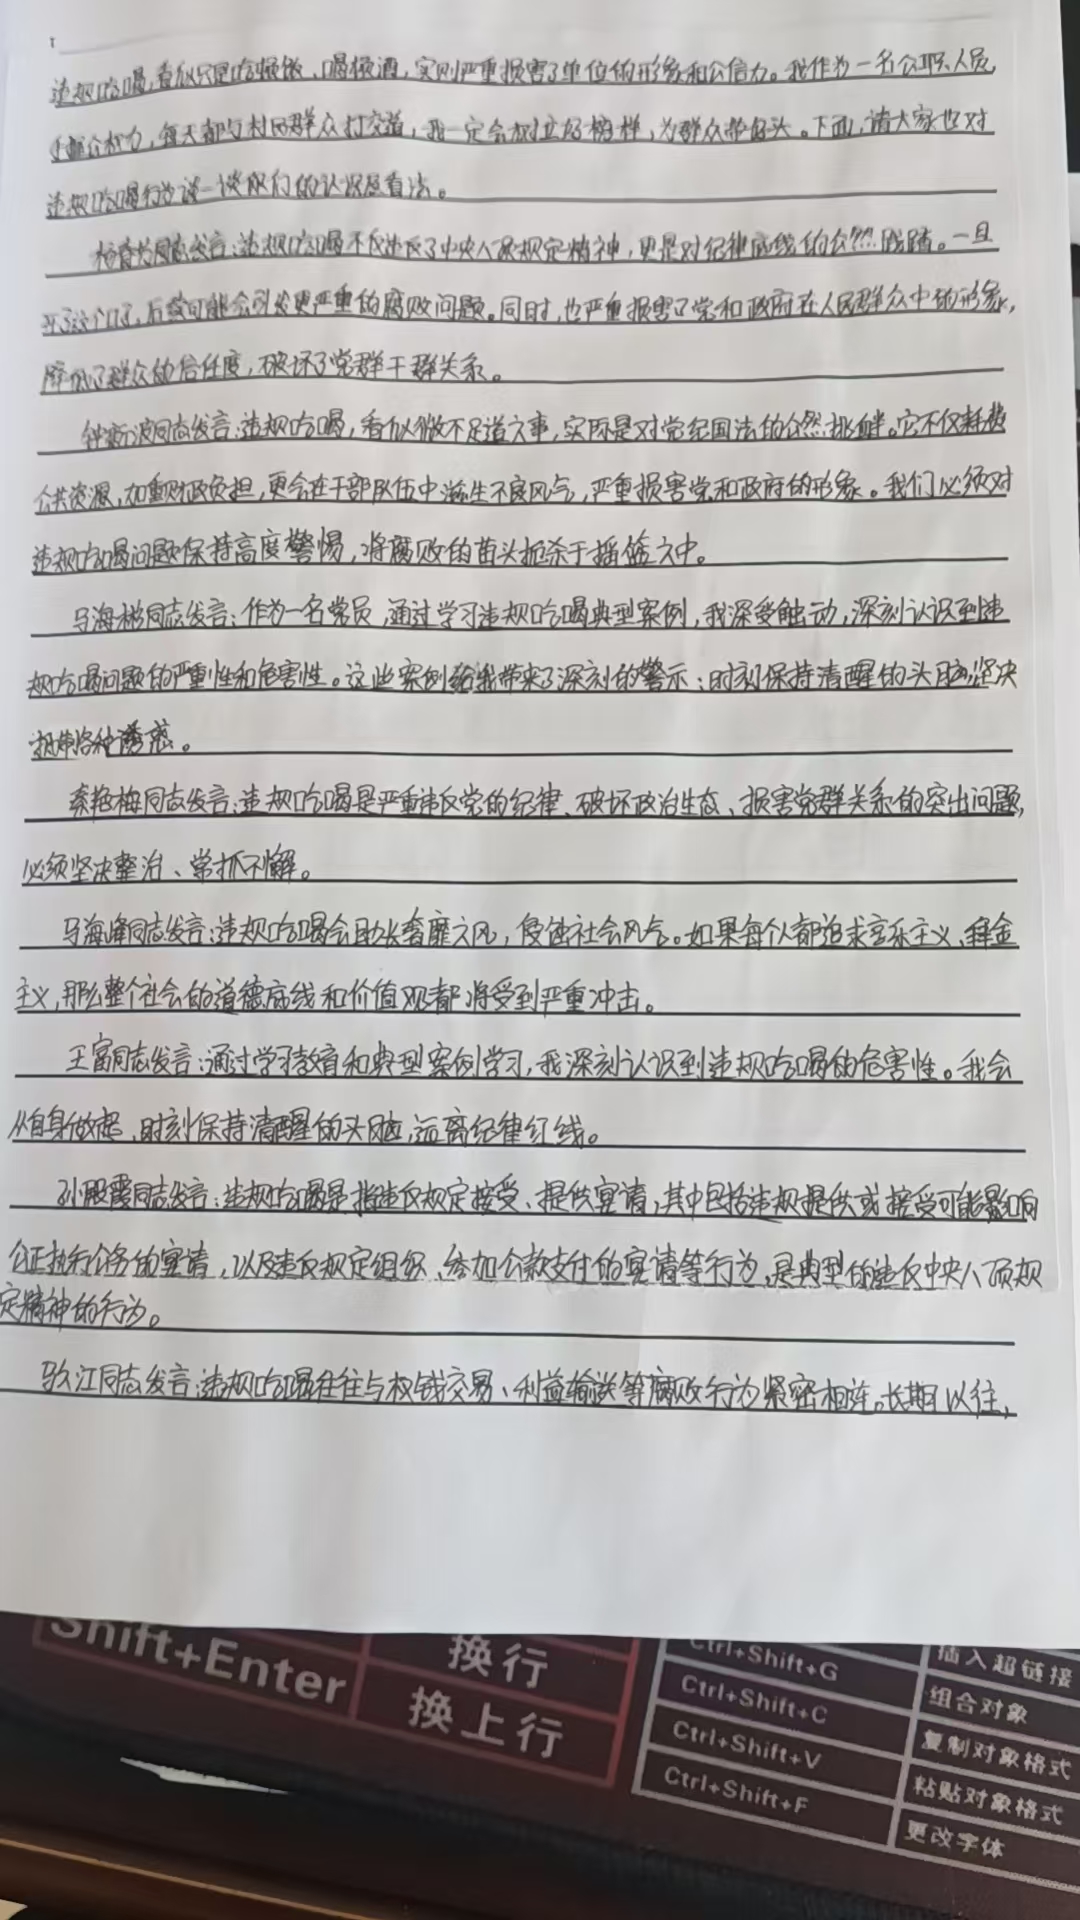 违规吃喝,看似只是吃顿饭、喝顿酒,实则严重损害了单位的形象和公信力。我作为一名公职人员
公权力,每天都与村民群众打交道,我一定会树立好榜样,为群众带好头。下面,请大家也对
违规吃喝行为谈一谈你们的认识及看法。
同志发言:违规吃喝不仅违反了中央八项规定精神,更是对纪律底线的公然践踏。一旦
开了这个口子,后续可能会引发更严重的腐败问题。同时,也严重损害了党和政府在人民群众中的形象,
降低了群众的信任度,破坏了党群干群关系。
同志发言:违规吃喝,看似微不足道之事,实际是对党纪国法的公然挑衅。它不仅耗费
公共资源,加重财政负担,更会在干部队伍中滋生不良风气,严重损害党和政府的形象。我们必须对
违规吃喝问题保持高度警惕,将腐败的苗头扼杀于摇篮之中。
马海彬同志发言:作为一名党员,通过学习违规吃喝典型案例,我深受触动,深刻认识到违
规吃喝问题的严重性和危害性。这些案例给我带来了深刻的警示:时刻保持清醒的头脑,坚决
抵制各种诱惑。
秦艳梅同志发言:违规吃喝是严重违反党的纪律、破坏政治生态、损害党群关系的突出问题,
必须坚决整治、常抓不懈。
马海峰同志发言:违规吃喝会助长奢靡之风,侵蚀社会风气。如果每个人都追求享乐主义、拜金
主义,那么整个社会的道德底线和价值观都将受到严重冲击。
王富同志发言:通过学习教育和典型案例学习,我深刻认识到违规吃喝的危害性。我会
从自身做起,时刻保持清醒的头脑,远离纪律红线。
孙殿霞同志发言:违规吃喝是指违反规定接受、提供宴请,其中包括违规提供或接受可能影响
公正执行公务的宴请,以及违反规定组织、参加公款支付的宴请等行为,是典型的违反中央八项规
定精神的行为。
马久江同志发言:违规吃喝往往与权钱交易、利益输送等腐败行为紧密相连。长期以往,
Shift+Enter 换行
换上行
Ctrl+Shift+G 插入超链接
Ctrl+Shift+C 组合对象
Ctrl+Shift+V 复制对象格式
Ctrl+Shift+F 粘贴对象格式
更改字体